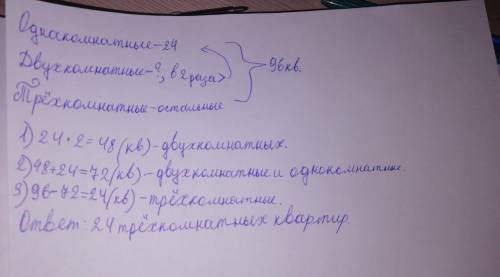 Однакомнатные-24
Двухкомнатные-?, в 2 раза>
96кв.
Трёхкомнатные-остальные
1) 24·2=48(кв)-двухкомнатных.
2) 48+24=72(кв)-двухкомнатные и однокомнатные.
3) 96-72=24(кв)-трёхкомнатные.
Ответ: 24 трёхкомнатных квартир.